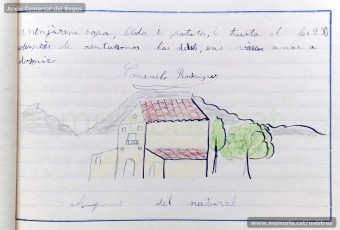 Arxiu Comarcal del Bages
menjàrem sopa, bledes i patates, i truita el les 9.30
després de rentarnos las dents, ens vàrem anar a
dormir.
Consuelo Rodríguez
del natural
www.memoria.cat/mestres